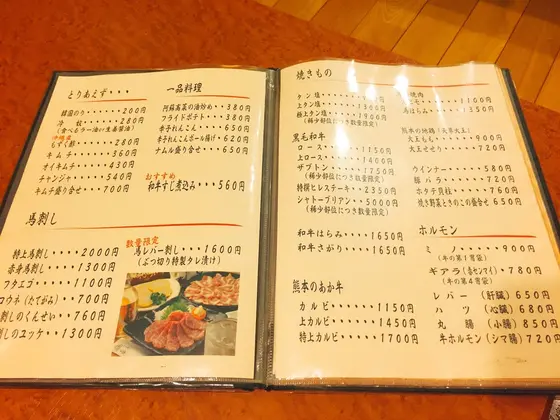 とりあえず・・・
韓国のり・・・・・・200円
冷奴・・・・・・280円
(食べるラー油or生姜醤油)
沖縄産
もずく酢・・・・・・280円
キムチ・・・・・・360円
オイキムチ・・・・430円
チャンジャ・・・・・540円
キムチ盛り合せ・・・700円
一品料理
阿蘇高菜の油炒め・・・380円
フライドポテト・・・・380円
辛子れんこん・・・・・650円
辛子れんこんボール揚げ・・620円
ナムル盛り合せ・・・・650円
おすすめ
和牛すじ煮込み・・・560円
馬刺し
特上馬刺し・・・・2000円
赤身馬刺し・・・・1300円
フタエゴ・・・・・1100円
コウネ(たてがみ)・・700円
刺しのくんせい・・・760円
刺しのユッケ・・・1300円
数量限定
馬レバー刺し・・・1600円
(ぶつ切り特製タレ漬け)
焼きもの
タン塩・・・・・・
上タン塩・・・・・1300円
極上タン塩・・・・1900円
(稀少部位につき数量限定)
黒毛和牛
ロース・・・・・・1150円
上ロース・・・・・1400円
ザブトン・・・・・1750円
(稀少部位につき数量限定)
特撰ヒレステーキ・・2350円
シャトーブリアン・・5000円
(稀少部位につき数量限定)
和牛はらみ・・・・1650円
和牛さがり・・・・1650円
熊本のあか牛
カルビ・・・・・・1150円
上カルビ・・・・・1450円
特上カルビ・・・・1700円
焼肉
モモ・・・・・・1100円
馬はらみ・・・・1350円
熊本の地鶏「天草大王」
大王もも・・・・・900円
大王せせり・・・・720円
ウインナー・・・・・580円
豚バラ・・・・・・720円
ホタテ貝柱・・・・・760円
焼き野菜ときのこの盛合せ 650円
ホルモン
ミノ・・・・・・900円
(牛の第1胃袋)
ギアラ(赤センマイ)・780円
(牛の第4胃袋)
レバー (肝臓) 650円
ハツ (心臓) 680円
丸腸 (小腸) 850円
牛ホルモン (シマ腸) 720円